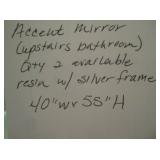 Accent Mirror
(upstairs bathroom)
Qty 2 available
resin w/ silver frame
40"W x 55"H